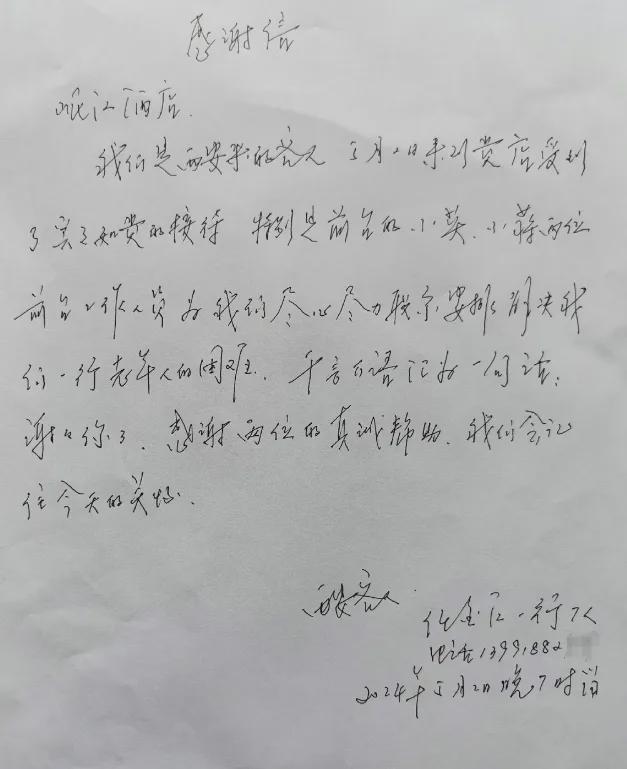 感谢信
岷江酒店.
我们是西安来的客人 5月2日来到贵店受到
了宾至如贵的接待 特别是前台的小英、小蒋两位
前台工作人员为我们尽心尽力联系安排解决我
们一行老年人的困难. 千言万语汇为一句话:
谢谢你了. 感谢两位的真诚帮助. 我们会记
住今天的美好.
西安客人
任 一行7人
电话13991882
2024年5月2日晚7时